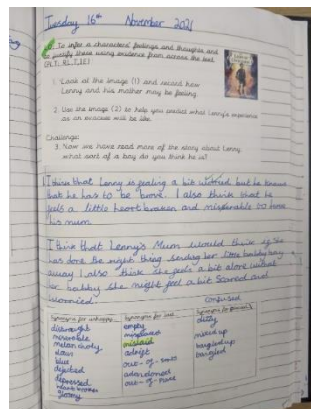 Tuesday 16th November 2021
LO: To infer a characters' feelings and thoughts and
to justify these using evidence from across the text
1. Look at the image (1) and record how
Lenny and his mother may be feeling.
2. Use the image (2) to help you predict what Lenny's experience
as an evacuee will be like.
Challenge:
3. Now we have read more of the story about Lenny,
what sort of a boy do you think he is?
I think that Lenny is feeling a bit worried but he knows
that he has to be brave. I also think that he
feels a little heart broken and miserable to leave
his mum.
I think that Lenny's Mum would think if she
has done the right thing sending her little baby boy
away I also think she feels a bit alone without
her hubby she might feel a bit scared and
worried.
confused
Synonyms for unhappy
Synonyms for lost
distraught
miserable
melancholy
down
blue
dejected
depressed
heart broken
gloomy
empty
misplaced
mislaid
adrift
out-of-sorts
abandoned
out-of-place
dizzy
mixed up